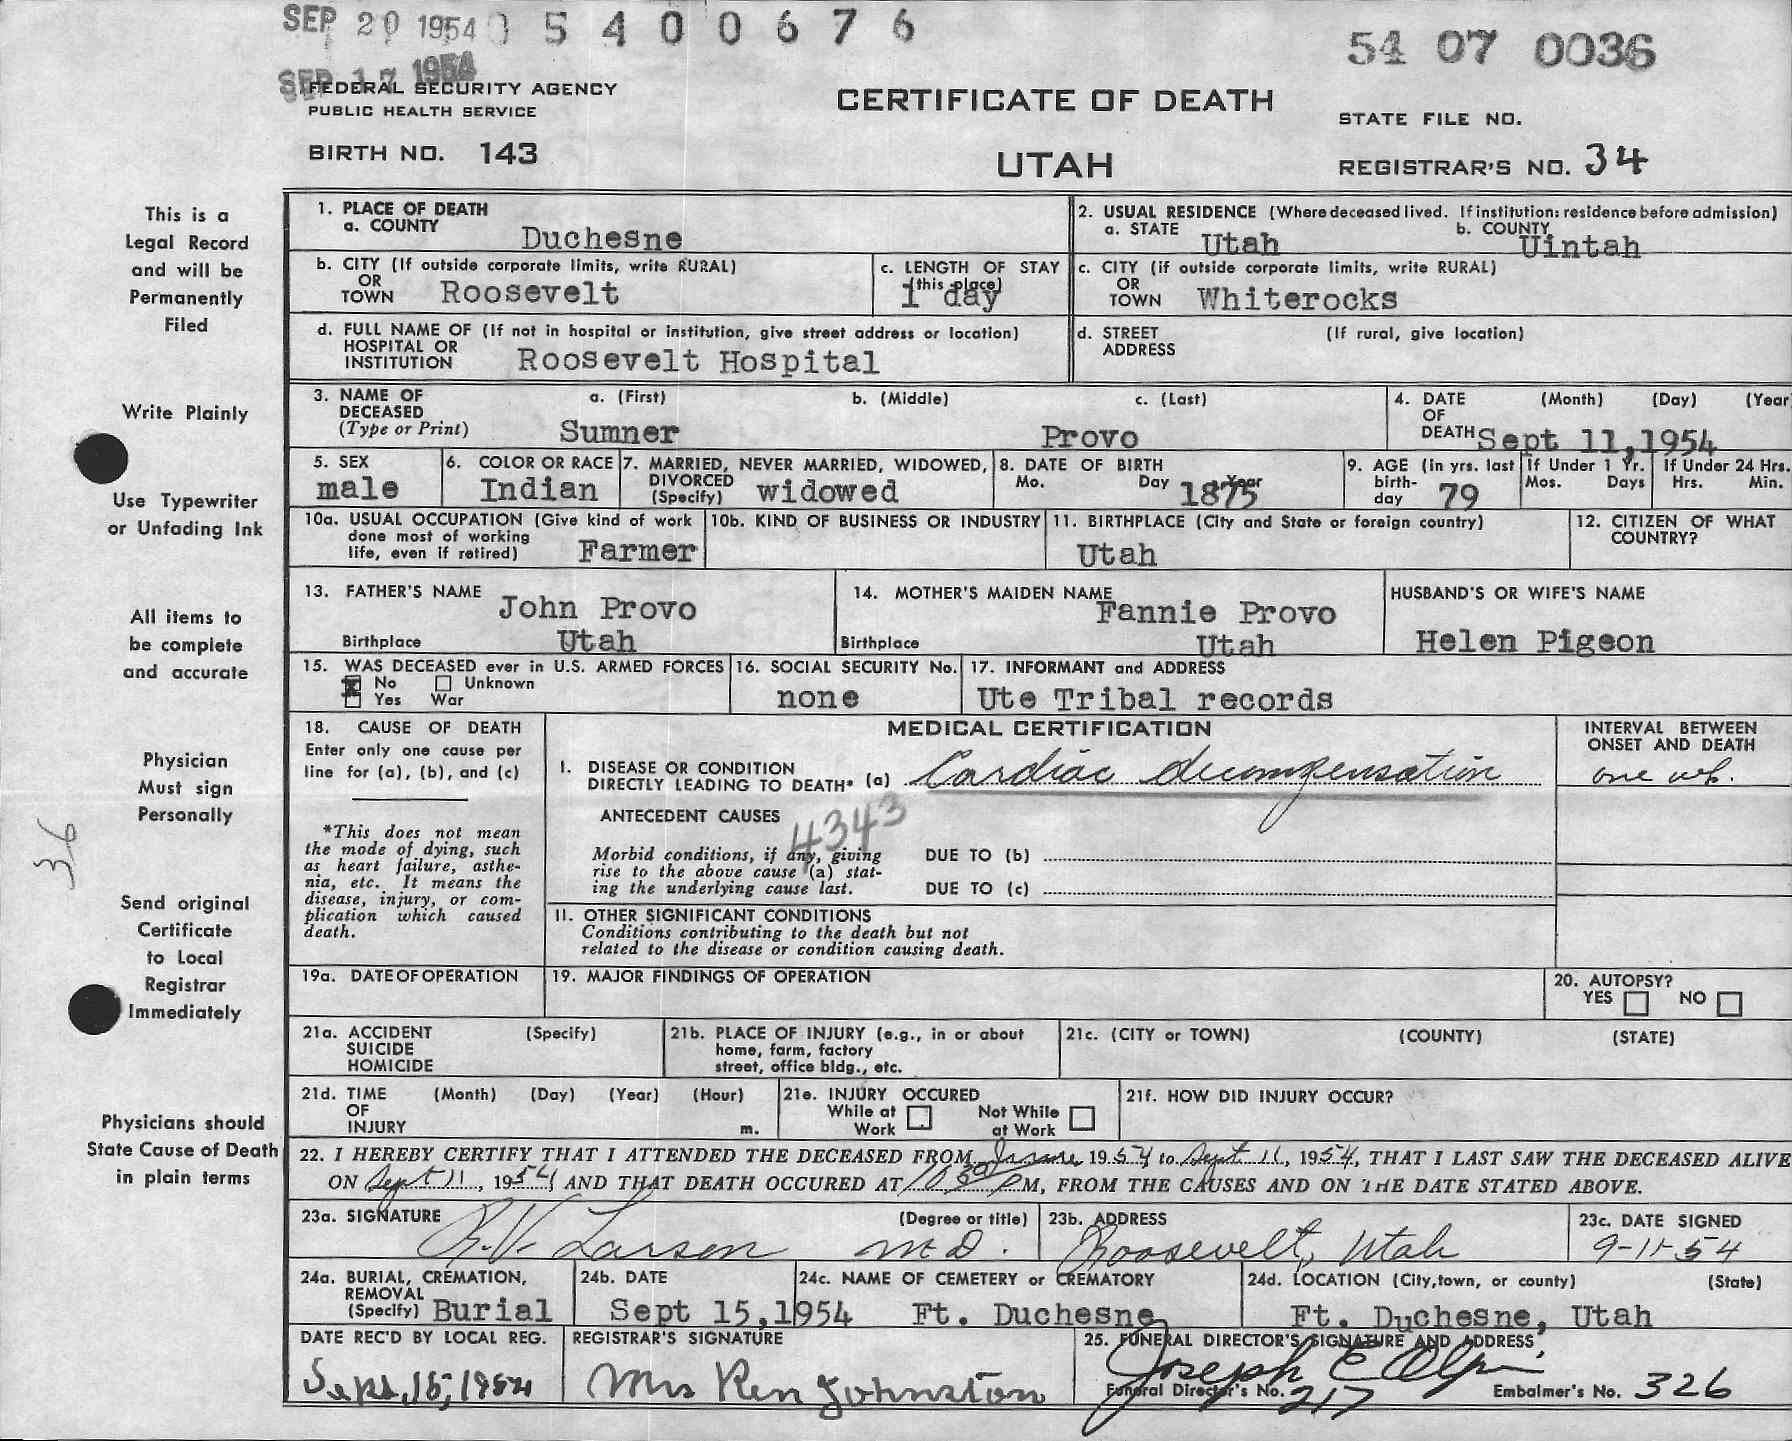 SEP 20 1954 0 5 4 0 0 6 7 6
54 07 0036
SEP 17 1954
FEDERAL SECURITY AGENCY
PUBLIC HEALTH SERVICE
CERTIFICATE OF DEATH
STATE FILE NO.
BIRTH NO. 143
UTAH
REGISTRAR'S NO. 34
This is a
Legal Record
and will be
Permanently
Filed
1. PLACE OF DEATH
a. COUNTY Duchesne
2. USUAL RESIDENCE (Where deceased lived. If institution: residence before admission)
a. STATE Utah b. COUNTY Uintah
b. CITY (If outside corporate limits, write RURAL)
OR
TOWN Roosevelt
c. LENGTH OF STAY
(this place)
1 day
c. CITY (if outside corporate limits, write RURAL)
OR
TOWN Whiterocks
d. FULL NAME OF (If not in hospital or institution, give street address or location)
HOSPITAL OR
INSTITUTION Roosevelt Hospital
d. STREET (If rural, give location)
ADDRESS
Write Plainly
3. NAME OF a. (First) b. (Middle) c. (Last)
DECEASED
(Type or Print) Sumner Provo
4. DATE (Month) (Day) (Year
OF
DEATH Sept 11,1954
5. SEX
male
6. COLOR OR RACE
Indian
7. MARRIED, NEVER MARRIED, WIDOWED,
DIVORCED
(Specify) widowed
8. DATE OF BIRTH
Mo. Day Year
1875
9. AGE (in yrs. last
birth-
day 79
If Under 1 Yr.
Mos. Days
If Under 24 Hrs.
Hrs. Min.
Use Typewriter
or Unfading Ink
10a. USUAL OCCUPATION (Give kind of work
done most of working
life, even if retired) Farmer
10b. KIND OF BUSINESS OR INDUSTRY
11. BIRTHPLACE (City and State or foreign country)
Utah
12. CITIZEN OF WHAT
COUNTRY?
All items to
be complete
and accurate
13. FATHER'S NAME John Provo
Birthplace Utah
14. MOTHER'S MAIDEN NAME Fannie Provo
Birthplace Utah
HUSBAND'S OR WIFE'S NAME
Helen Pigeon
15. WAS DECEASED ever in U.S. ARMED FORCES
No Unknown
Yes War
16. SOCIAL SECURITY No.
none
17. INFORMANT and ADDRESS
Ute Tribal records
Physician
Must sign
Personally
18. CAUSE OF DEATH
Enter only one cause per
line for (a), (b), and (c)
*This does not mean
the mode of dying, such
as heart failure, asthe-
nia, etc. It means the
disease, injury, or com-
plication which caused
death.
MEDICAL CERTIFICATION
I. DISEASE OR CONDITION
DIRECTLY LEADING TO DEATH* (a) Cardiac decompensation
INTERVAL BETWEEN
ONSET AND DEATH
one wk.
ANTECEDENT CAUSES
4343
Morbid conditions, if any, giving
rise to the above cause (a) stat-
ing the underlying cause last.
DUE TO (b)
DUE TO (c)
36
Send original
Certificate
to Local
Registrar
Immediately
II. OTHER SIGNIFICANT CONDITIONS
Conditions contributing to the death but not
related to the disease or condition causing death.
19a. DATE OF OPERATION
19. MAJOR FINDINGS OF OPERATION
20. AUTOPSY?
YES NO
21a. ACCIDENT (Specify)
SUICIDE
HOMICIDE
21b. PLACE OF INJURY (e.g., in or about
home, farm, factory
street, office bldg., etc.
21c. (CITY or TOWN) (COUNTY) (STATE)
21d. TIME (Month) (Day) (Year) (Hour)
OF
INJURY m.
21e. INJURY OCCURED
While at Not While
Work at Work
21f. HOW DID INJURY OCCUR?
Physicians should
State Cause of Death
in plain terms
22. I HEREBY CERTIFY THAT I ATTENDED THE DECEASED FROM 1954 to Sept 11, 1954, THAT I LAST SAW THE DECEASED ALIVE
ON Sept 11, 1954 AND THAT DEATH OCCURED AT 10 30 P M, FROM THE CAUSES AND ON THE DATE STATED ABOVE.
23a. SIGNATURE (Degree or title)
R.V. Larsen M.D.
23b. ADDRESS
Roosevelt, Utah
23c. DATE SIGNED
9-11-54
24a. BURIAL, CREMATION,
REMOVAL
(Specify) Burial
24b. DATE
Sept 15,1954
24c. NAME OF CEMETERY or CREMATORY
Ft. Duchesne
24d. LOCATION (City, town, or county) (State)
Ft. Duchesne, Utah
DATE REC'D BY LOCAL REG.
Sept, 15, 1954
REGISTRAR'S SIGNATURE
Mrs Ken Johnston
25. FUNERAL DIRECTOR'S SIGNATURE AND ADDRESS
Joseph E
Funeral Director's No. 217 Embalmer's No. 326